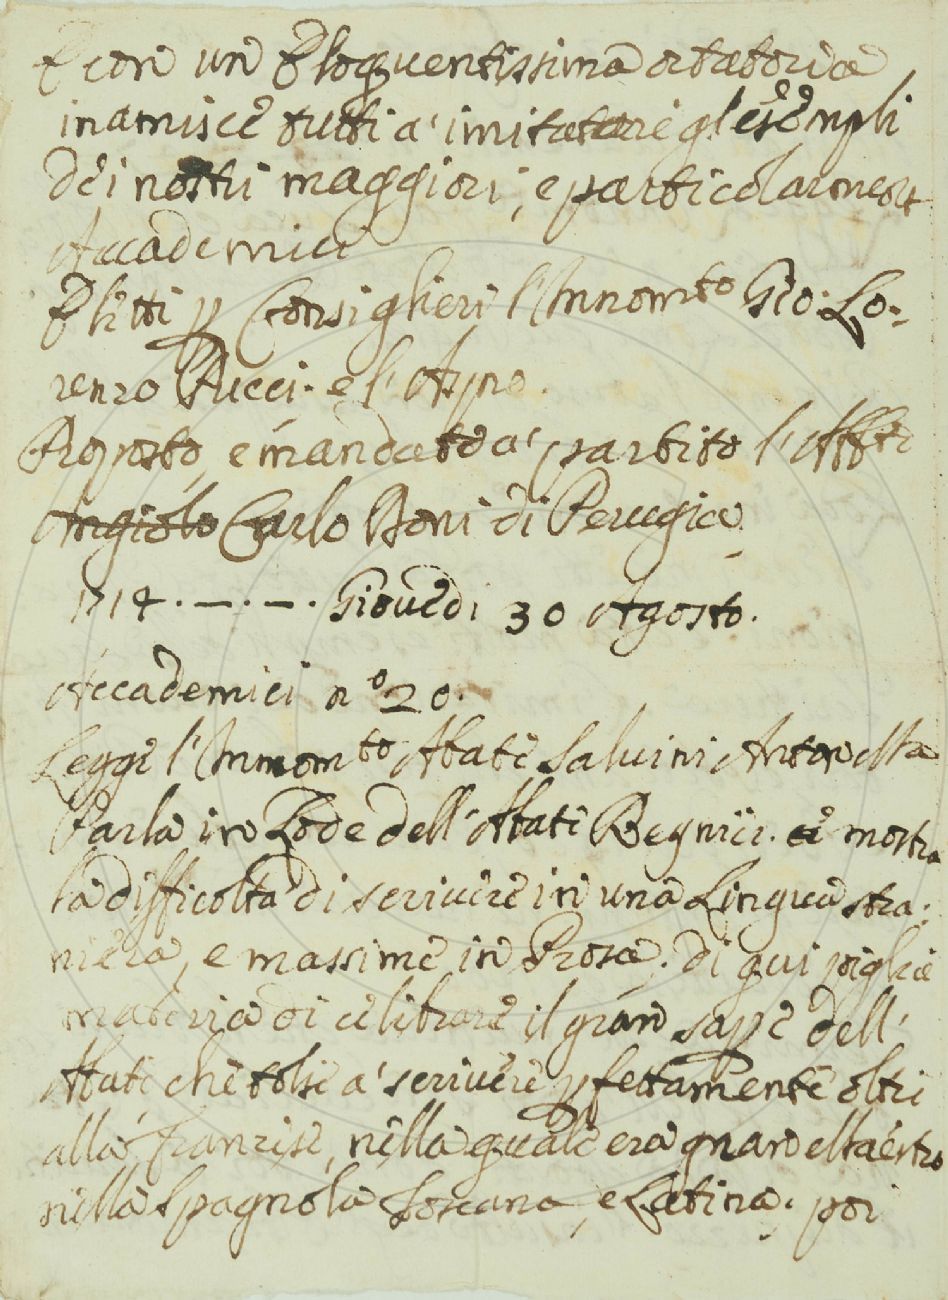 E con un Eloquentissima oratoria
inanisce tutti a' imitare gl'esempli
dei nostri maggiori, e particolarmente
Accademici
Eletti p Consiglieri l'Innomto Gio: Lo=
renzo Pucci. e l'Aspro.
Proposto, e mandato a' partito l'Affto
Angiolo Carlo Boni di Perugia.
1714. —. —. Giovedi 30 Agosto.
Accademici no 20.
Legge l'Innomto Abate Salvini Anton Ma
Parla in Lode dell'Abate Regnier. e mostra
la difficolta di scrivere in una Lingua stra=
niera, e massime in Prosa. di qui piglia
materia di celebrare il gran sape dell'
Abate che tolse a' scrivere pfettamente oltre
alla franzese, nella quale era gran Maestro
nella Spagnola Toscana, e Latina. poi